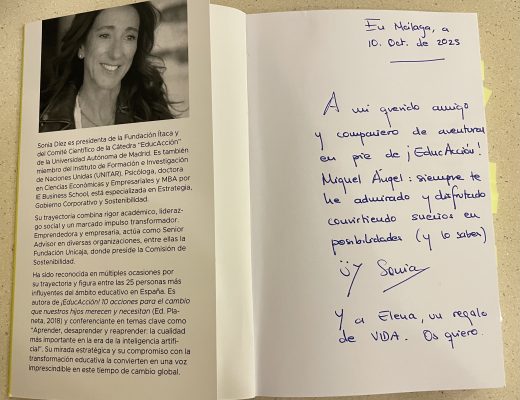 Sonia Díez es presidenta de la Fundación Ítaca y
del Comité Científico de la Cátedra "EducAcción"
de la Universidad Autónoma de Madrid. Es también
miembro del Instituto de Formación e Investigación
de Naciones Unidas (UNITAR). Psicóloga, doctora
en Ciencias Económicas y Empresariales y MBA por
IE Business School, está especializada en Estrategia,
Gobierno Corporativo y Sostenibilidad.
Su trayectoria combina rigor académico, lideraz-
go social y un marcado impulso transformador.
Emprendedora y empresaria, actúa como Senior
Advisor en diversas organizaciones, entre ellas la
Fundación Unicaja, donde preside la Comisión de
Sostenibilidad.
Ha sido reconocida en múltiples ocasiones por
su trayectoria y figura entre las 25 personas más
influyentes del ámbito educativo en España. Es
autora de ¡EducAcción! 10 acciones para el cambio
que nuestros hijos merecen y necesitan (Ed. Pla-
neta, 2018) y conferenciante en temas clave como
"Aprender, desaprender y reaprender: la cualidad
más importante en la era de la inteligencia artifi-
cial". Su mirada estratégica y su compromiso con la
transformación educativa la convierten en una voz
imprescindible en este tiempo de cambio global.
En Málaga, a
10. Oct. de 2025
A mi querido amigo
y compañero de aventuras
en pie de ¡EducAcción!
Miguel Ángel: siempre te
he admirado y disfrutado
convirtiendo sueños en
posibilidades (y lo sabes)
Sonia
Y a Elena, un regalo
de VIDA. Os quiero.